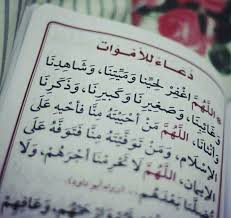 دُعَاءٌ لِلْأَمْوَات
* اللَّهُمَّ اغْفِرْ لِحَيِّنَا وَمَيِّتِنَا، وَشَاهِدِنَا
وَغَائِبِنَا، وَصَغِيرِنَا وَكَبِيرِنَا، وَذَكَرِنَا
وَأُنْثَانَا، اللَّهُمَّ مَنْ أَحْيَيْتَهُ مِنَّا فَأَحْيِهِ عَلَى
الْإِسْلَامِ، وَمَنْ تَوَفَّيْتَهُ مِنَّا فَتَوَفَّهُ عَلَى
الْإِيمَانِ، اللَّهُمَّ لَا تَحْرِمْنَا أَجْرَهُمْ، وَلَا
تُضِلَّنَا بَعْدَهُمْ (رواه أبو داود)
وَعَافِهِمْ